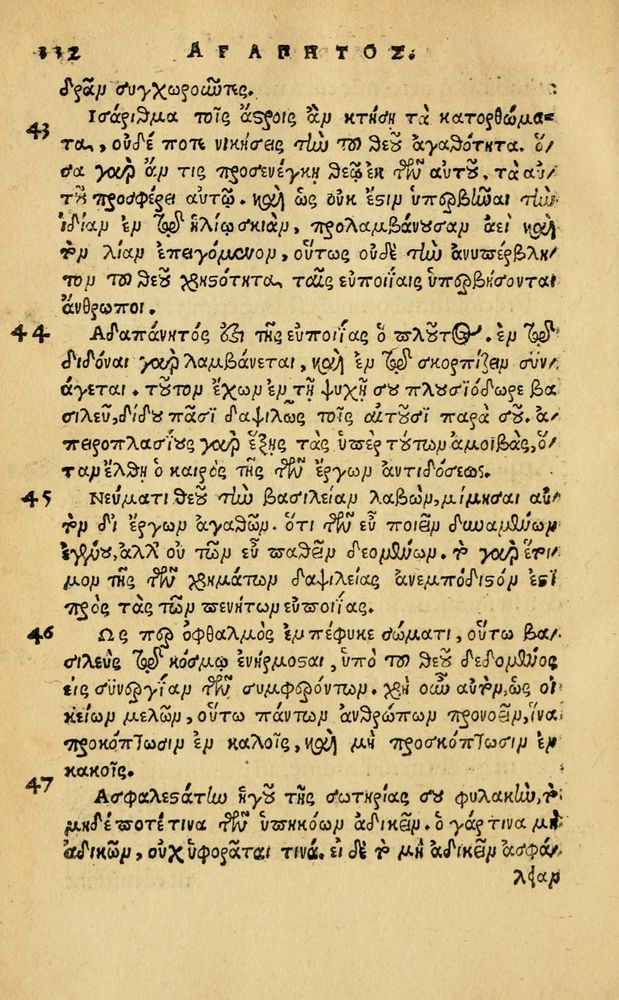 332 ΑΓΑΠΗΤΟΣ.
δρᾶν συγχωροῦντες.
43 Ἰσάριθμα τοῖς ἄστροις ἂν κτήσῃ τὰ κατορθώμα=
τα, οὐδέ ποτε νικήσεις τὴν τοῦ θεοῦ ἀγαθότητα. ὅ/
σα γὰρ ἄν τις προσενέγκῃ θεῷ ἐκ τῶν αὐτοῦ. τὰ αὐ/
τοῦ προσφέρει αὐτῷ. καὶ ὡς οὐκ ἔστιν ὑπερβῆναι τὴν
ἰδίαν ἐν τῷ ἡλίῳ σκιὰν, προλαμβάνουσαν ἀεὶ καὶ
τὸν λίαν ἐπειγόμενον, οὕτως οὐδὲ τὴν ἀνυπέρβλη/
τον τοῦ θεοῦ χρηστότητα ταῖς εὐποιΐαις ὑπερβήσονται
ἄνθρωποι.
44 Ἀδαπάνητός ἐστι τῆς εὐποιΐας ὁ πλοῦτος. ἐν τῷ
διδόναι γὰρ λαμβάνεται, καὶ ἐν τῷ σκορπίζειν συν/
άγεται. τοῦτον ἔχων ἐν τῇ ψυχῇ σου πλουσιόδωρε βα
σιλεῦ, δίδου πᾶσι δαψιλῶς τοῖς αἰτοῦσι παρὰ σοῦ. ἀ/
πειροπλασίους γὰρ ἕξεις τὰς ὑπὲρ τούτων ἀμοιβὰς, ὅ/
ταν ἔλθῃ ὁ καιρὸς τῆς τῶν ἔργων ἀντιδόσεως.
45 Νεύματι θεοῦ τὴν βασιλείαν λαβὼν, μίμησαι αὐ/
τὸν δι ἔργων ἀγαθῶν. ὅτι τῶν εὖ ποιεῖν δυναμένων
ἐγένου, ἀλλ οὐ τῶν εὖ παθεῖν δεομένων. τὸ γὰρ ἕτοι
μον τῆς τῶν χρημάτων δαψιλείας ἀνεμπόδιστόν ἐστι
πρὸς τὰς τῶν πενήτων εὐποιΐας.
46 Ὥς περ ὀφθαλμὸς ἐμπέφυκε σώματι, οὕτω βα/
σιλεὺς τῷ κόσμῳ ἐνήρμοσται, ὑπὸ τοῦ θεοῦ δεδομένος
εἰς συνεργίαν τῶν συμφερόντων. χρὴ οὖν αὐτὸν, ὡς οἰ
κείων μελῶν, οὕτω πάντων ἀνθρώπων προνοεῖν, ἵνα
προκόπτωσιν ἐν καλοῖς, καὶ μὴ προσκόπτωσιν ἐν
κακοῖς.
47 Ἀσφαλεστάτην ἡγοῦ τῆς σωτηρίας σου φυλακὴν, τὸ
μηδέποτέ τινα τῶν ὑπηκόων ἀδικεῖν. ὁ γάρ τινα μὴ
ἀδικῶν, οὐχ ὑφορᾶται τινά. εἰ δὲ τὸ μὴ ἀδικεῖν ἀσφά/
λειαν